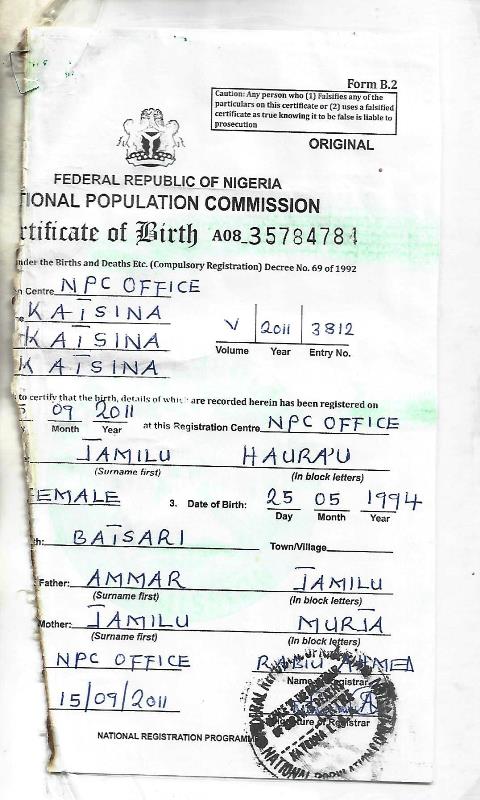 Form B.2
Caution: Any person who (1) Falsifies any of the
particulars on this certificate or (2) uses a falsified
certificate as true knowing it to be false is liable to
prosecution
ORIGINAL
FEDERAL REPUBLIC OF NIGERIA
TIONAL POPULATION COMMISSION
rtificate of Birth A08 35784784
nder the Births and Deaths Etc. (Compulsory Registration) Decree No. 69 of 1992
n Centre NPC OFFICE
KATSINA
KATSINA
KATSINA
V 2011 3812
Volume Year Entry No.
to certify that the birth, details of which are recorded herein has been registered on
09 2011 at this Registration Centre NPC OFFICE
Month Year
JAMILU HAURA'U
(Surname first) (In block letters)
EMALE 3. Date of Birth: 25 05 1994
Day Month Year
th: BATSARI Town/Village
Father: AMMAR JAMILU
(Surname first) (In block letters)
Mother: JAMILU MURJA
(Surname first) (In block letters)
NPC OFFICE RABIU AHMED
Name of Registrar
15/09/2011
Signature of Registrar
NATIONAL REGISTRATION PROGRAMM